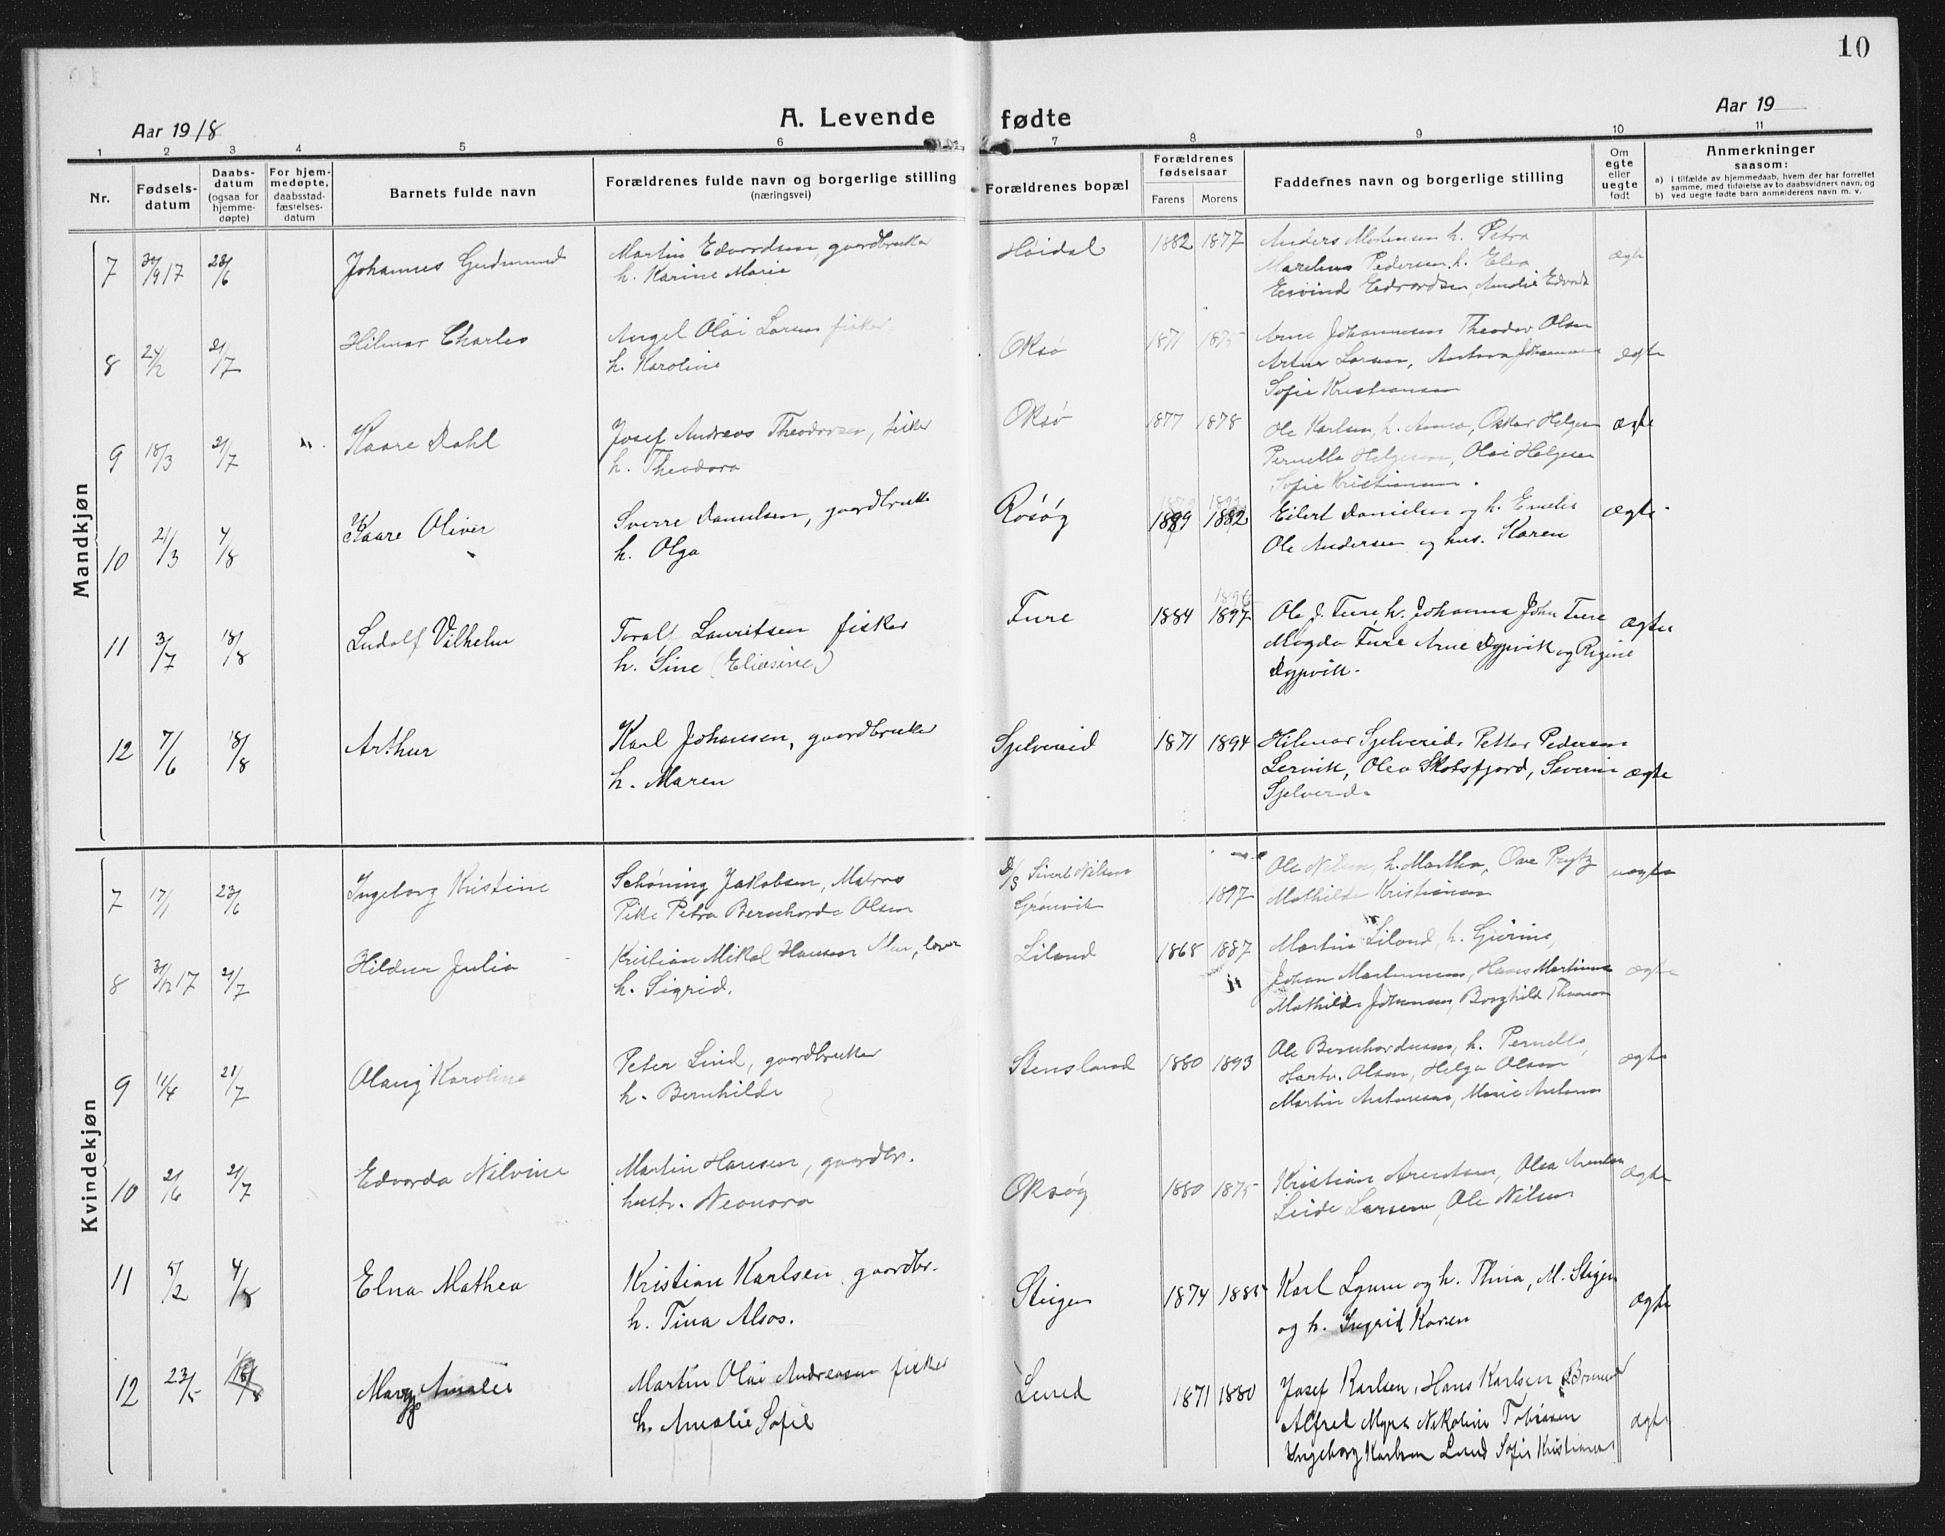 10
Aar 1918
A. Levende fødte
Aar 19
1 2 3 4 5 6 7 8 9 10 11
Nr.
Fødselsdatum
Daabsdatum (ogsaa for hjemmedøpte)
For hjemmedøpte, daabsstadfæstelsesdatum
Barnets fulde navn
Forældrenes fulde navn og borgerlige stilling
(næringsvei)
Forældrenes bopæl
Forældrenes fødselsaar
Farens Morens
Faddernes navn og borgerlige stilling
Om egte eller uegte født
Anmerkninger
saasom:
a) i tilfælde av hjemmedaab, hvem der har forrettet samme, med tilføielse av to daabsvidners navn, og
b) ved uegte fødte barn anmelderens navn m. v.
Mandkjøn
7 /9 17 23/6 Johannes Gudmund
Martin Edvardsen, gaardbruker
h. Karine Marie
Høidal 1882 1877
Anders Mortensen h. Petra
Marelius Pedersen, h. Elea
Eivind Edvardsen, Amalie
ægte
8 24/2 21/7 Hilmar Charles
Angel Olai Larsen fisker
h. Karoline
Oksø 1871 1875
Arne Johannesen Theodor Olsen
Artur Larsen, Antona
Sofie Kristiansen
ægte
9 18/3 21/7 " Kaare Dahl
Josef Andreas Theodorsen, fisker
h. Theodora
Oksø 1877 1878
Ole Karlsen, h. Anna, Oskar Helgesen
Pernella Helgesen, Olai Helgesen
Sofie Kristiansen.
ægte
10 21/3 4/8 Kaare Oliver
Sverre Danielsen, gaardbruker
h. Olga
Røsøg 1889 1882
Eilert Danielsen og h. Emelie
Ole Andersen og hus. Karen
ægte
11 3/7 18/8 Ludolf Vilhelm
Toralf Lauritsen fisker
h. Sine (Eliasine)
Fure 1884 1896 1897
Ole J. Fure, h. Johanna John Fure
Magda Fure Arne Dypvik og Regine
Dypvik.
ægte
12 7/6 18/8 Arthur
Karl Johansen, gaardbruker
h. Maren
Sjelvereid 1871 1894
Hilmar Sjelvereid, Petter Pedersen
Lervik, Olea Skotsfjord, Severin
Sjelvereid
ægte
Kvindekjøn
7 17/1 23/6 Ingeborg Kristine
Schøning Jakobsen, Matros
Pike Petra Bernharda Olsen
D/S Sivert Nilsen
Grønvik
1897
Ole Nilsen, h. Martha, Ove Prytz
Mathilde Kristiansen
uægte
8 31/12 17 21/7 Hildur Julia
Kristian Mikal Hansen
h. Sigrid.
Liland 1868 1887
Martin Liland, h. Gjerine,
Johan Martinusen, Hans Martinusen
Mathilde Johansen, Borghild
ægte
9 11/4 21/7 Olaug Karoline
Peter Lind, gaardbruker
h. Bernhilde
Stensland 1880 1893
Ole Bernhardsen, h. Pernella,
Hartv. Olsen, Helga Olsen
Martin Antonsen, Marie Antonsen
ægte
10 2/6 21/7 Edvarda Nilvine
Martin Hansen, gaardbr.
hustr. Neonora
Oksøg 1880 1875
Kristian Arentsen, Olea Arentsen
Larsen, Ole Nilsen
ægte
11 5/2 4/8 Elna Mathea
Kristian Karlsen gaardbr.
h. Tina Alsos.
Steigen 1874 1885
Karl Lynum og h. Thina, M. Steigen
og h. Ingrid Karen
ægte
12 23/5 18/8 Mary Amalie
Martin Olai Andreasen fisker
h. Amalie Sofie
Lund 1871 1880
Josef Karlsen, Hans Karlsen
Alfred Myra Nikoline Tobiasen
Ingeborg Karlsen Lund Sofie Kristiansen
ægte